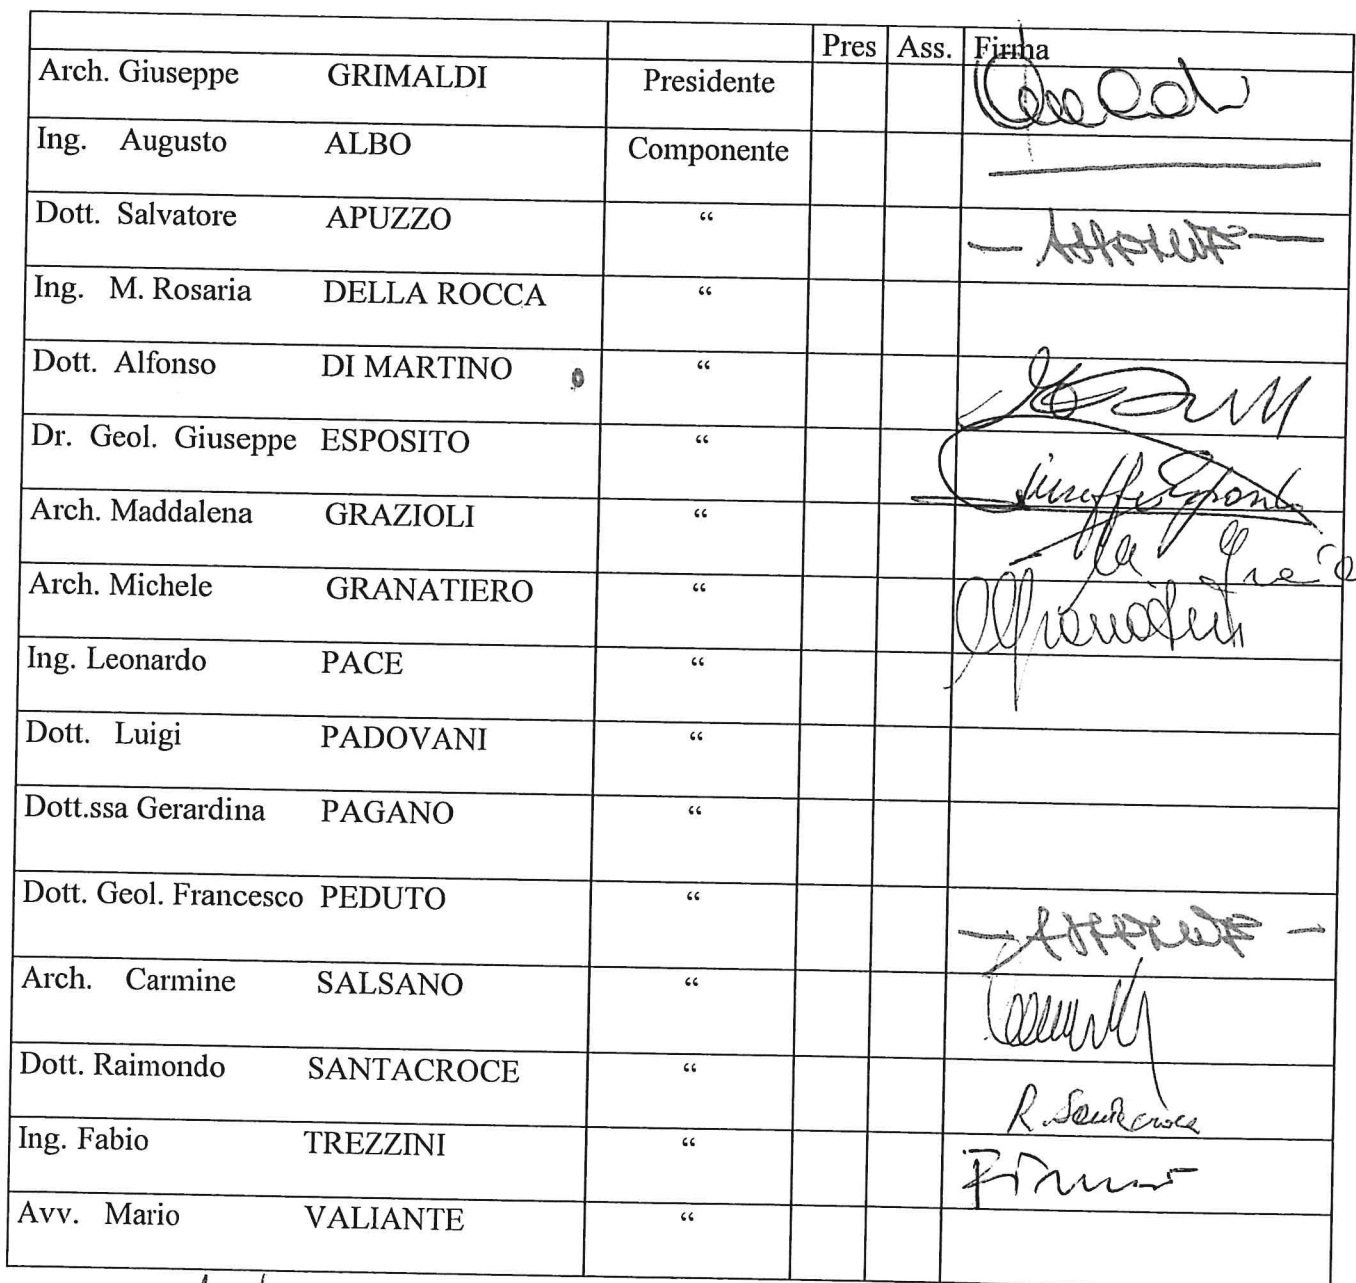 Pres Ass. Firma
Arch. Giuseppe GRIMALDI Presidente
Ing. Augusto ALBO Componente
Dott. Salvatore APUZZO “ — ASSENTE —
Ing. M. Rosaria DELLA ROCCA “
Dott. Alfonso DI MARTINO “
Dr. Geol. Giuseppe ESPOSITO “ Giuseppe Esposito
Arch. Maddalena GRAZIOLI “
Arch. Michele GRANATIERO “
Ing. Leonardo PACE “
Dott. Luigi PADOVANI “
Dott.ssa Gerardina PAGANO “
Dott. Geol. Francesco PEDUTO “ — ASSENTE —
Arch. Carmine SALSANO “
Dott. Raimondo SANTACROCE “ R. Santacroce
Ing. Fabio TREZZINI “
Avv. Mario VALIANTE “